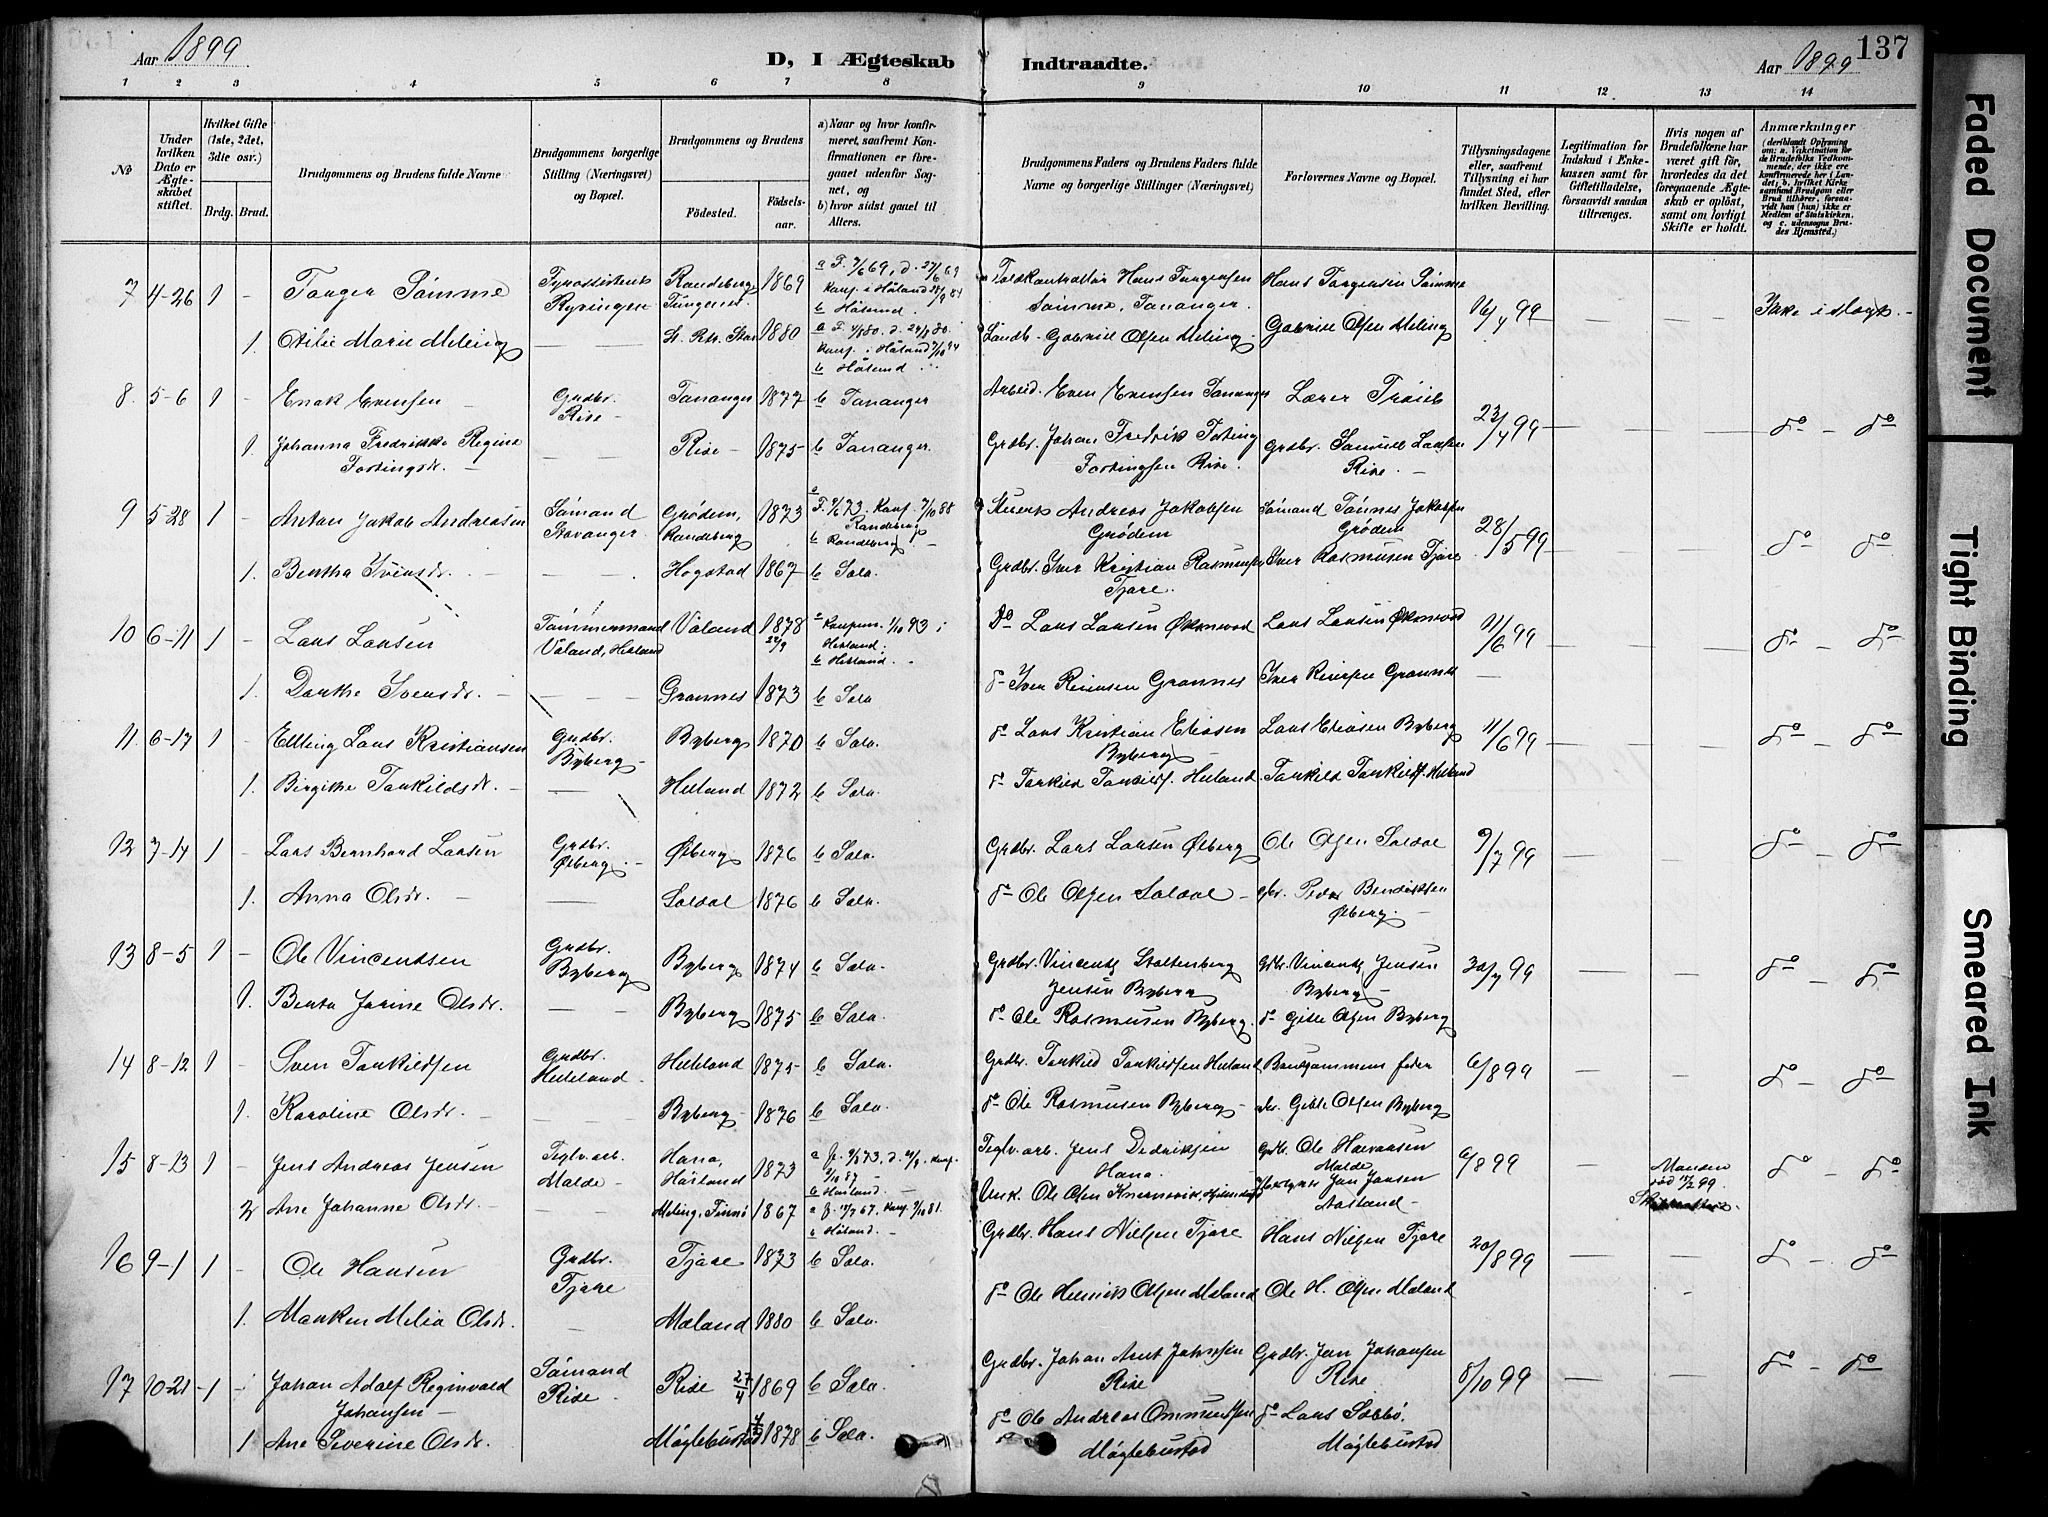 Aar 1899
D, I Ægteskab Indtraadte.
Aar 1899
137
1 2 3 4 5 6 7 8 9 10 11 12 13 14
No
Under hvilken Dato er Ægteskabet stiftet.
Hvilket Gifte (1ste, 2det, 3die osr.)
Brdg. Brud.
Brudgommens og Brudens fulde Navne
Brudgommens borgerlige Stilling (Næringsvei) og Bopæl.
Brudgommens og Brudens
Födested.
Födselsaar.
a) Naar og hvor konfirmeret, saafremt Konfirmationen er foregaaet udenfor Sognet, og
b) hvor sidst gaaet til Alters.
Brudgommens Faders og Brudens Faders fulde Navne og borgerlige Stillinger (Næringsvei)
Forlovernes Navne og Bopæl.
Tillysningsdagene eller, saafremt Tillysning ei har fundet Sted, efter hvilken Bevilling.
Legitimation for Indskud i Enkekassen samt for Giftetilladelse, forsaavidt saadan tiltrænges.
Hvis nogen af Brudefolkene har været gift för, hvorledes da det foregaaende Ægteskab er oplöst, samt om lovligt Skifte er holdt.
Anmærkninger
(deriblandt Oplysning om: a. Vakcination for de Brudefolks Vedkommende, der ikke ere konfirmerede her i Landet; b. hvilket Kirkesamfund Brudgom eller Brud tilhörer, forsaavidt han (hun) ikke er Medlem af Statskirken, og c. udensogns Brudes Hjemsted.)
7 4-26 1 - Tonger Sømme Randeberg Tungenes 1869 a F. 7/6 69, d. 27/6 69 Konf. i Håland b Håland Toldkontrollør Hans Torgersen Sømme, Tananger. Hans Torgersen Sømme 16/4 99 Ikke i Slægt.
1. Otilie Marie Meling 1880 Konf. i Håland b Håland Landh. Gabriel Olsen Meling Gabriel Olsen Meling
8. 5-6 1 - Enok Evensen Grdbr. Rise Tananger 1877 b Tananger Arbeid. Even Evensen Tananger Lærer 23/4 99 do - do
1. Johanna Fredrikke Regine Tostingsdr. Rise 1875 b Tananger. Grdbr. Johan Fredrik Tosting Tostingsen Rise. Grdbr. Samuel Larsen Rise.
9 5-28 1 - Anton Jakob Andreasen Sømand Stavanger Grødem, Randeberg 1873 Konf. Randeberg b Randeberg Andreas Jakobsen Grødem Sømand Tønnes Jakobsen Grødem 28/5 99 do do
1. Bertha Iversdr. Hogstad 1867 b Sola. Grdbr. Iver Kristian Rasmussen Tjore. Iver Rasmusen Tjore.
10 6-11 1 - Lars Larsen Tømmermand Våland, Hetland Våland 1878 Hetland. b Hetland. Do Lars Larsen Lars Larsen 11/6 99 do do
1. Dorthe Iversdr. Grannes 1873 b Sola do Iver Reiersen Grannes Iver Reiersen Grannes
11. 6-17 1 - Elling Lars Kristiansen Grdbr. Byberg Byberg 1870 b Sola. do Lars Kristian Eliasen Byberg Lars Eliasen Byberg 11/6 99 do do
1. Birgithe Torkildsdr. Helland 1872 b Sola. do Torkild Torkilds. Helland. Torkild Torkilds. Helland
12 7-14 1 - Lars Bernhard Larsen Grdbr. Ølberg. Ølberg 1876 b Sola. Grdbr. Lars Larsen Ølberg Ole Olsen Soldal 9/7 99 do - do
1. Anna Olsdr. Soldal 1876 b Sola. do Ole Olsen Soldal Peder Bendiksen Ølberg.
13 8-5 1 - Ole Vincendsen Grdbr. Byberg Byberg 1874 b Sola. Grdbr. Vincents Stoltenberg Jensen Byberg Vincents Jensen Byberg 30/7 99 do - do
1. Berta Jorine Olsdr. Byberg 1875 b Sola. do Ole Rasmusen Byberg. do Gitle Olsen Byberg
14 8-12 1 - Sven Torkildsen Grdbr. Helleland. Helleland 1875 b Sola. Grdbr. Torkild Torkildsen Helland Brudgommens fader 6/8 99 do - do
1. Karoline Olsdr. Byberg 1876 b Sola. do Ole Rasmusen Byberg Gitle Olsen Byberg
15 8-13 1 - Jens Andreas Jensen Teglv. arb. Malde. Hana, Høiland 1873 Teglv. arb. Jens Dedriksen Hana. Malde 6/8 99 Manden død do - do
2 Ane Johanne Olsdr. Meling, 1867 b Håland.
16 9-1 1 - Ole Hansen Grdbr. Tjore Tjore 1873 b Sola. Grdbr. Hans Nilsen Tjore Hans Nilsen Tjore 20/8 99 do - do
1. Maaken Melia Olsdr. Mæland 1880 b Sola. do Ole Henrik Olsen Mæland Ole H. Olsen Mæland
17 10-21 1 Johan Adolf Reginvald Johansen Sømand Rise Rise 27/4 1869 b Sola. Grdbr. Johan Arnt Johnsen Rise Grdbr. Jon Johansen Rise 8/10 99 do - do
1 Ane Severine Olsdr. Møglebustad 1878 b Sola. do Ole Andreas Ommundsen Møglebustad do Lars Møglebustad
Faded Document
Tight Binding
Smeared Ink